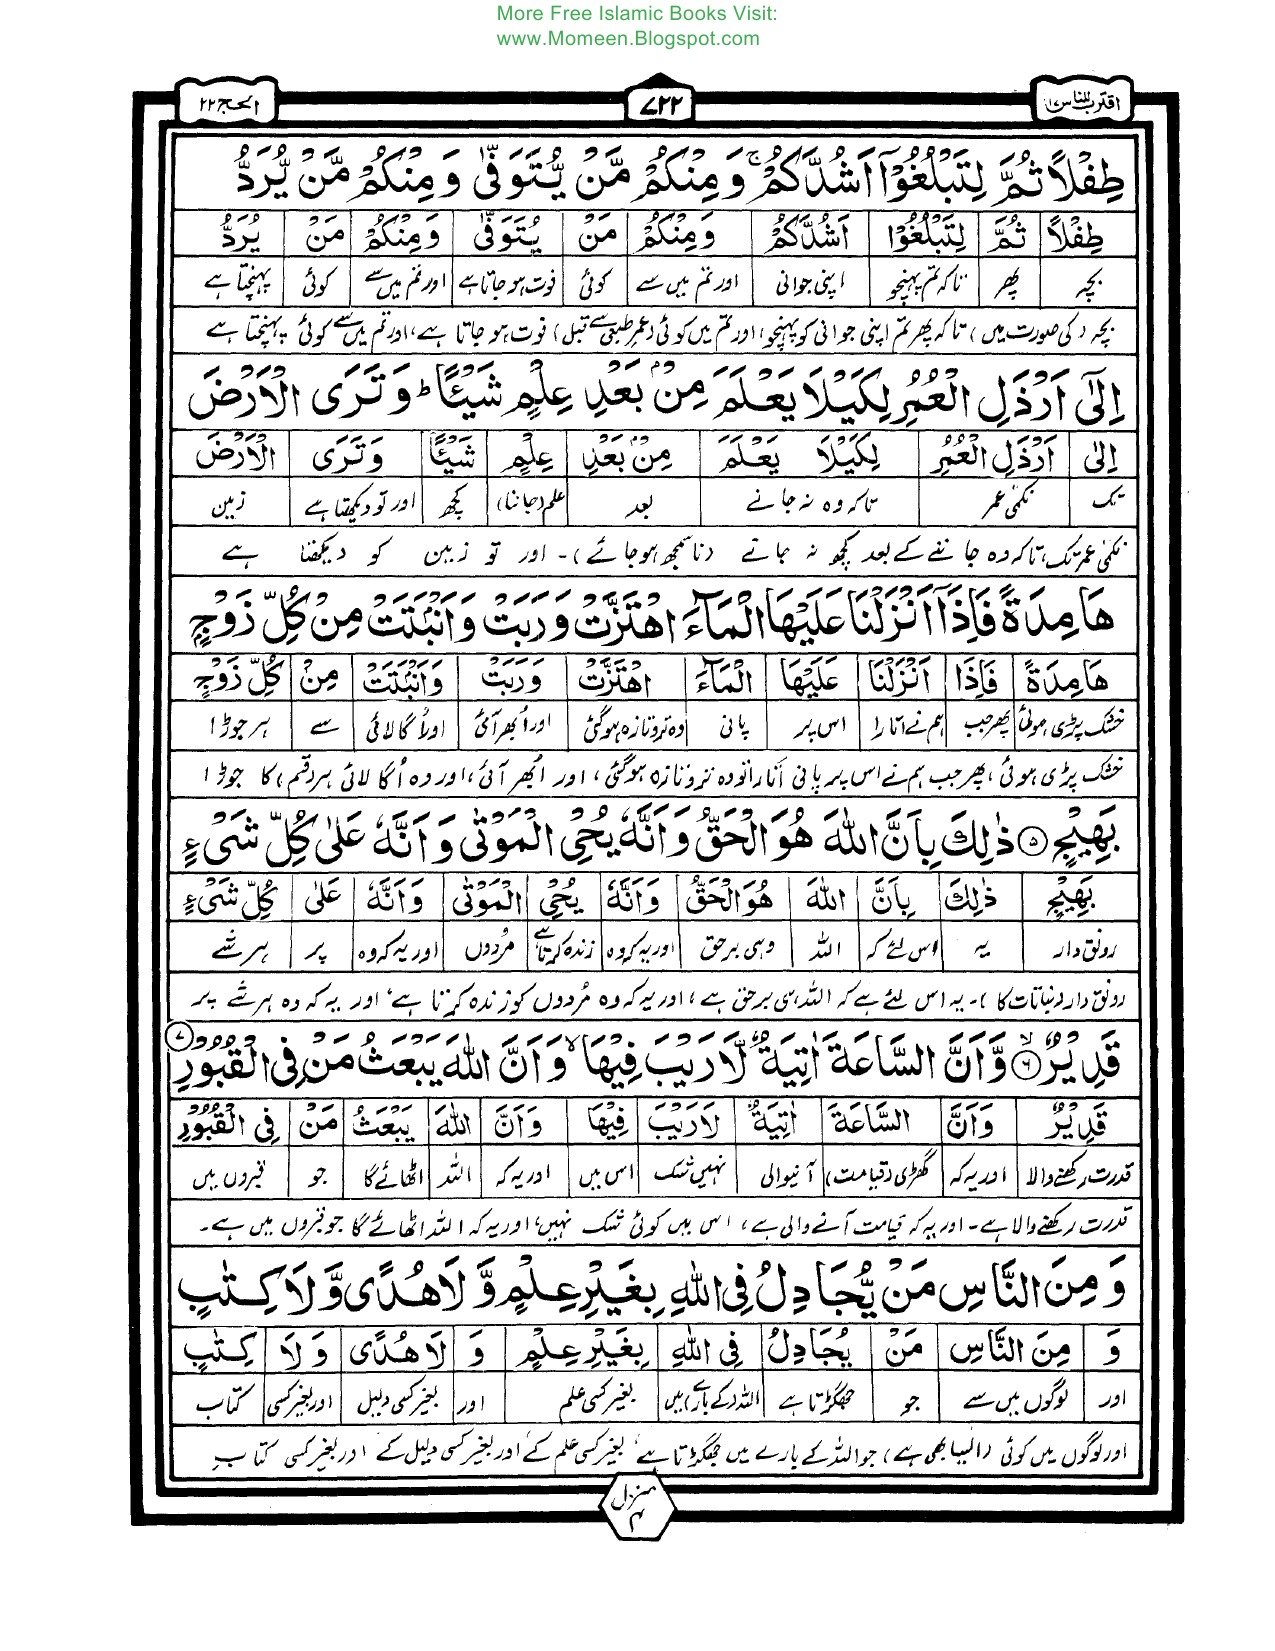 More Free Islamic Books Visit:
www.Momeen.Blogspot.com
اقترب للناس ۱۷
۷۲۲
الحج ۲۲
طِفْلًا ثُمَّ لِتَبْلُغُوْۤا اَشُدَّكُمْ ۚ وَمِنْكُمْ مَّنْ يُّتَوَفّٰى وَمِنْكُمْ مَّنْ يُّرَدُّ
طِفْلًا ثُمَّ لِتَبْلُغُوْۤا اَشُدَّكُمْ وَمِنْكُمْ مَنْ يُتَوَفّٰى وَمِنْكُمْ مَنْ يُرَدُّ
بچہ پھر تاکہ تم پہنچو اپنی جوانی اور تم میں سے کوئی فوت ہو جاتا ہے اور تم میں سے کوئی پہنچتا ہے
بچہ (کی صورت میں) تاکہ پھر تم اپنی جوانی کو پہنچو، اور تم میں کوئی (عمر طبعی سے قبل) فوت ہو جاتا ہے، اور تم میں سے کوئی پہنچتا ہے
اِلٰۤى اَرْذَلِ الْعُمُرِ لِكَيْلَا يَعْلَمَ مِنْۢ بَعْدِ عِلْمٍ شَيْئًا ؕ وَتَرَى الْاَرْضَ
اِلٰى اَرْذَلِ الْعُمُرِ لِكَيْلَا يَعْلَمَ مِنْۢ بَعْدِ عِلْمٍ شَيْئًا وَتَرَى الْاَرْضَ
تک نکمی عمر تاکہ وہ نہ جانے بعد علم (جاننا) کچھ اور تو دیکھتا ہے زمین
نکمی عمر تک، تاکہ وہ جاننے کے بعد کچھ نہ جانے (ناسمجھ ہو جائے)۔ اور تو زمین کو دیکھتا ہے
هَامِدَةً فَاِذَاۤ اَنْزَلْنَا عَلَيْهَا الْمَآءَ اهْتَزَّتْ وَرَبَتْ وَاَنْۢبَتَتْ مِنْ كُلِّ زَوْجٍۭ
هَامِدَةً فَاِذَا اَنْزَلْنَا عَلَيْهَا الْمَآءَ اهْتَزَّتْ وَرَبَتْ وَاَنْۢبَتَتْ مِنْ كُلِّ زَوْجٍ
خشک پڑی ہوئی پھر جب ہم نے اتارا اس پر پانی وہ تروتازہ ہوگئی اور اُبھر آئی اور اُگا لائی سے ہر جوڑا
خشک پڑی ہوئی، پھر جب ہم نے اس پر پانی اتارا تو وہ تروتازہ ہوگئی، اور اُبھر آئی، اور وہ اُگا لائی ہر (قسم) کا جوڑا
بَهِيْجٍ ۵ ذٰلِكَ بِاَنَّ اللّٰهَ هُوَ الْحَقُّ وَاَنَّهٗ يُحْيِ الْمَوْتٰى وَاَنَّهٗ عَلٰى كُلِّ شَيْءٍ
بَهِيْجٍ ذٰلِكَ بِاَنَّ اللّٰهَ هُوَ الْحَقُّ وَاَنَّهٗ يُحْيِ الْمَوْتٰى وَاَنَّهٗ عَلٰى كُلِّ شَيْءٍ
رونق دار یہ اس لئے کہ اللہ وہی برحق اور یہ کہ وہ زندہ کرتا ہے مُردوں اور یہ کہ وہ پر ہر شے
رونق دار (نباتات کا)۔ یہ اس لئے ہے کہ اللہ ہی برحق ہے، اور یہ کہ وہ مُردوں کو زندہ کرتا ہے، اور یہ کہ وہ ہر شے پر
قَدِيْرٌ ۙ ۶ وَّاَنَّ السَّاعَةَ اٰتِيَةٌ لَّا رَيْبَ فِيْهَا ۙ وَاَنَّ اللّٰهَ يَبْعَثُ مَنْ فِى الْقُبُوْرِ ۷
قَدِيْرٌ وَاَنَّ السَّاعَةَ اٰتِيَةٌ لَا رَيْبَ فِيْهَا وَاَنَّ اللّٰهَ يَبْعَثُ مَنْ فِى الْقُبُوْرِ
قدرت رکھنے والا اور یہ کہ گھڑی (قیامت) آنیوالی نہیں شک اس میں اور یہ کہ اللہ اٹھائے گا جو قبروں میں
قدرت رکھنے والا ہے۔ اور یہ کہ قیامت آنے والی ہے، اس میں کوئی شک نہیں، اور یہ کہ اللہ اٹھائے گا جو قبروں میں ہے۔
وَمِنَ النَّاسِ مَنْ يُّجَادِلُ فِى اللّٰهِ بِغَيْرِ عِلْمٍ وَّلَا هُدًى وَّلَا كِتٰبٍ
وَ مِنَ النَّاسِ مَنْ يُجَادِلُ فِى اللّٰهِ بِغَيْرِ عِلْمٍ وَ لَا هُدًى وَلَا كِتٰبٍ
اور لوگوں میں سے جو جھگڑتا ہے اللہ (کے بارے) میں بغیر کسی علم اور بغیر کسی دلیل اور بغیر کسی کتاب
اور لوگوں میں کوئی (ایسا بھی ہے) جو اللہ کے بارے میں جھگڑتا ہے بغیر کسی علم کے اور بغیر کسی دلیل کے اور بغیر کسی کتاب
منزل ۴